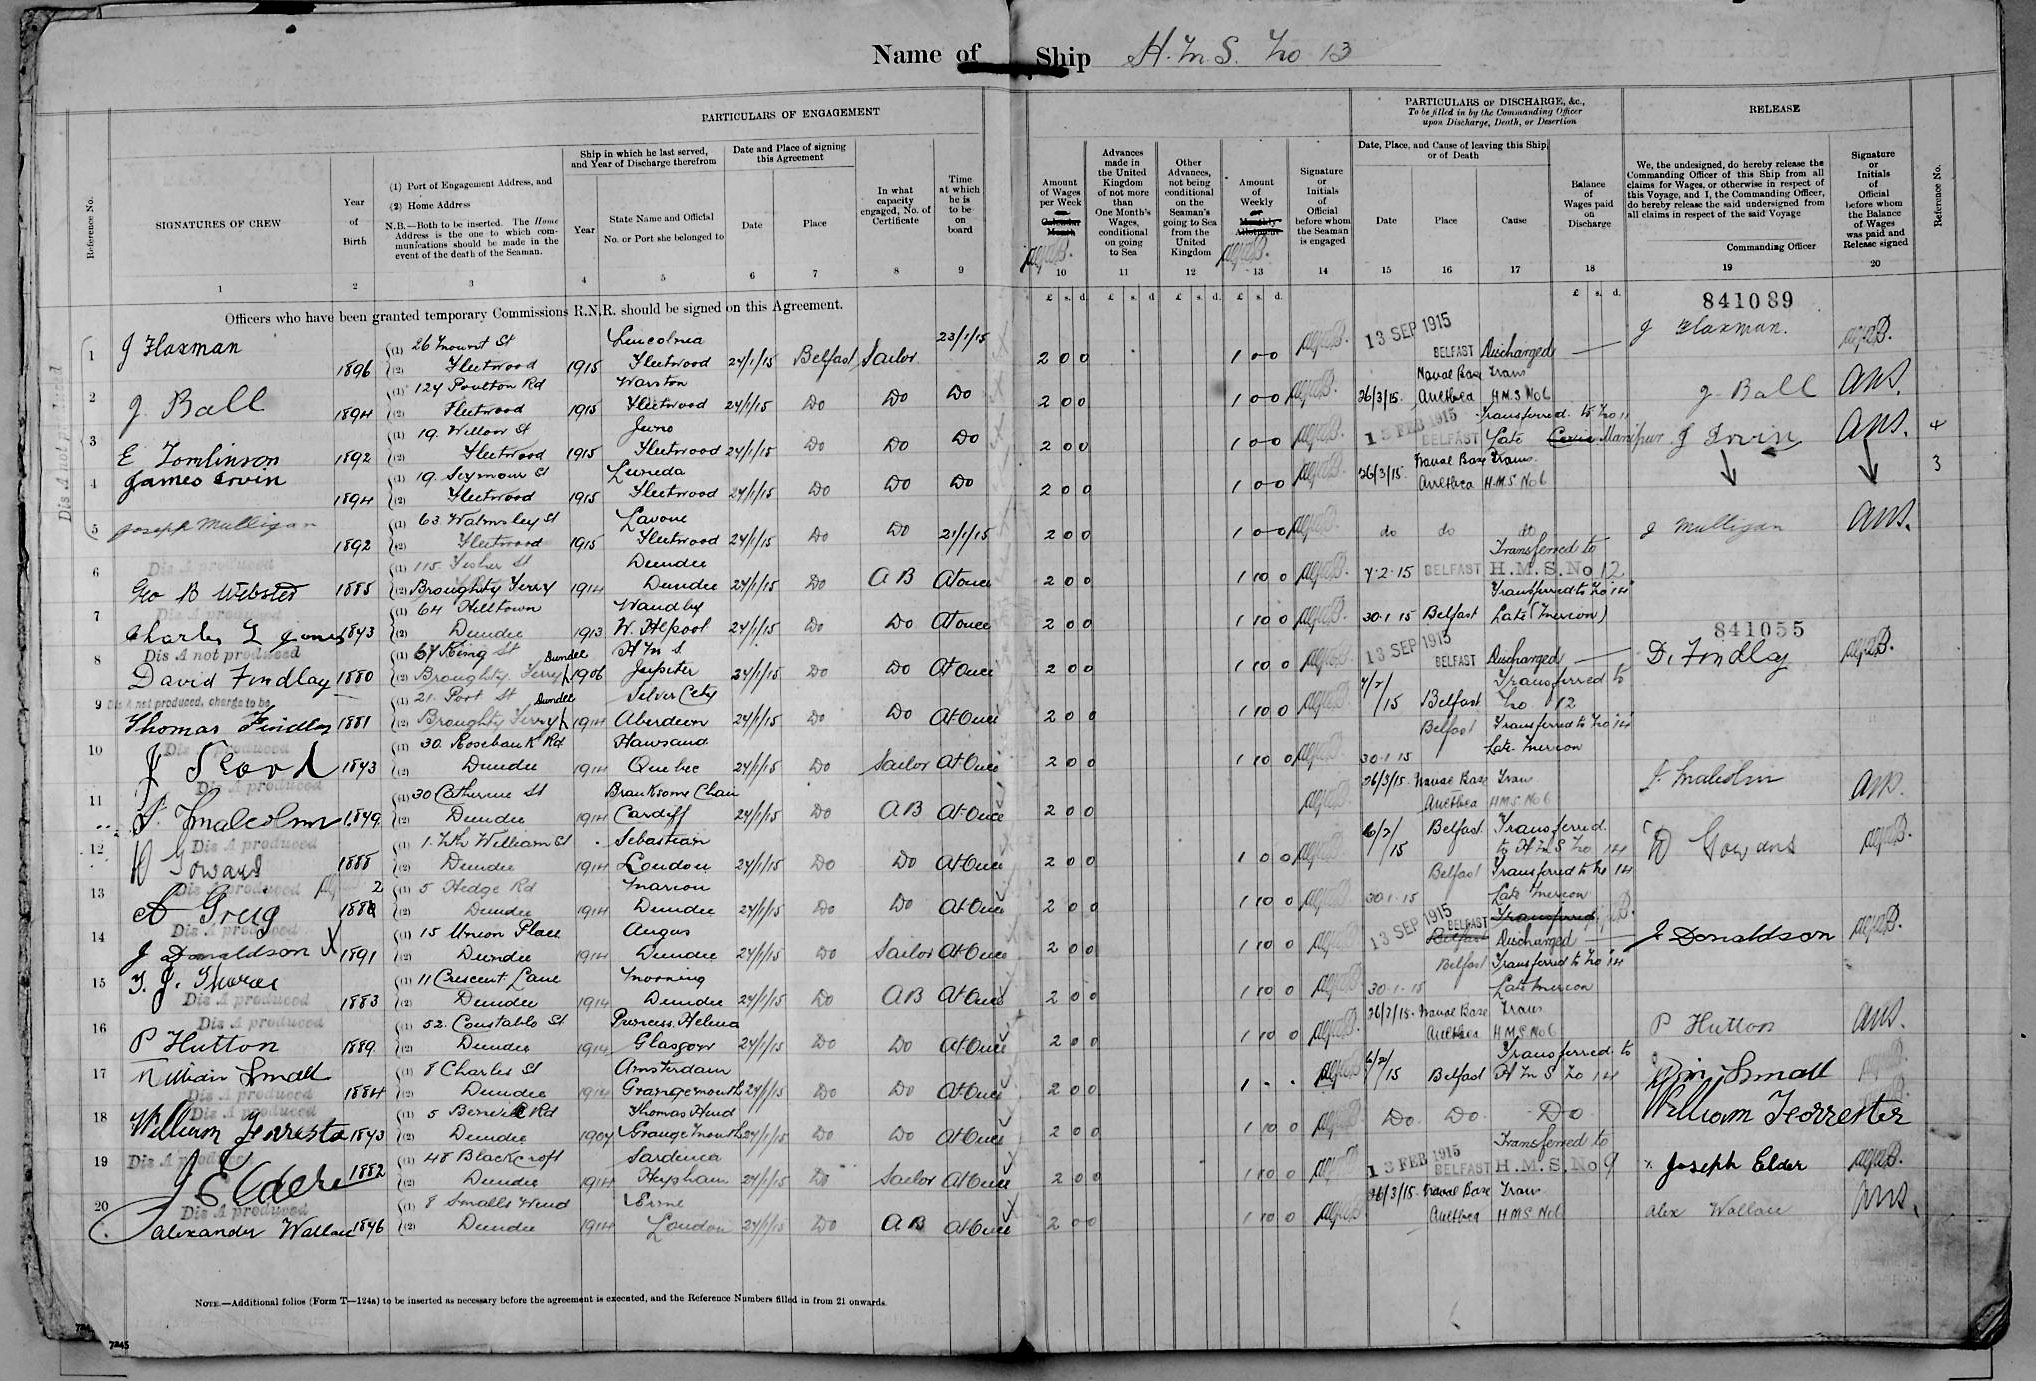 Name of Ship H.M.S. No 13
PARTICULARS OF ENGAGEMENT
PARTICULARS OF DISCHARGE, &c.,
To be filled in by the Commanding Officer
upon Discharge, Death, or Desertion
RELEASE
Reference No.
SIGNATURES OF CREW
1
Year
of
Birth
2
(1) Port of Engagement Address, and
(2) Home Address
N.B.—Both to be inserted. The Home
Address is the one to which com-
munications should be made in the
event of the death of the Seaman.
3
Ship in which he last served,
and Year of Discharge therefrom
Year
4
State Name and Official
No. or Port she belonged to
5
Date and Place of signing
this Agreement
Date
6
Place
7
In what
capacity
engaged, No. of
Certificate
8
Time
at which
he is
to be
on
board
9
Amount
of Wages
per Week
or
Calendar
Month
10
Advances
made in
the United
Kingdom
of not more
than
One Month's
Wages,
conditional
on going
to Sea
11
Other
Advances,
not being
conditional
on the
Seaman's
going to Sea
from the
United
Kingdom
12
Amount
of
Weekly
or
Monthly
Allotment
13
Signature
or
Initials
of
Official
before whom
the Seaman
is engaged
14
Date, Place, and Cause of leaving this Ship,
or of Death
Date
15
Place
16
Cause
17
Balance
of
Wages paid
on
Discharge
18
We, the undersigned, do hereby release the
Commanding Officer of this Ship from all
claims for Wages, or otherwise in respect of
this Voyage, and I, the Commanding Officer,
do hereby release the said undersigned from
all claims in respect of the said Voyage
Commanding Officer
19
Signature
or
Initials
of
Official
before whom
the Balance
of Wages
was paid and
Release signed
20
Reference No.
£ s. d. £ s. d £ s. d. £ s. d. £ s. d.
Officers who have been granted temporary Commissions R.N.R. should be signed on this Agreement.
841089
Dis A not produced
1 J Flaxman 1896 (1) 26 Mount St Lincolnia 23/1/15
(2) Fleetwood 1915 Fleetwood 24/1/15 Belfast Sailor 2 0 0 1 0 0 13 SEP 1915 BELFAST Discharged J Flaxman.
2 J Ball 1894 (1) 124 Poulton Rd Warston
(2) Fleetwood 1915 Fleetwood 24/1/15 Do Do Do 2 0 0 1 0 0 26/3/15. Naval Base Trans
H.M.S No 6 J Ball
3 E Tomlinson 1892 (1) 19. Willow St Juno
(2) Fleetwood 1915 Fleetwood 24/1/15 Do Do Do 2 0 0 1 0 0 13 FEB 1915 BELFAST Transferred to No 11
Late Manipur J Irvin 4
4 James Irvin 1894 (1) 19. Seymour St
(2) Fleetwood 1915 Fleetwood 24/1/15 Do Do Do 2 0 0 1 0 0 26/3/15. Naval Base Trans.
H.M.S. No 6 3
5 Joseph Mulligan 1892 (1) 63. Walmsley St
(2) Fleetwood 1915 Fleetwood 24/1/15 Do Do 21/1/15 2 0 0 1 0 0 do do do J Mulligan
Dis A produced
6 Geo B Webster 1885 (1) 115 Fisher St Dundee
(2) Broughty Ferry 1914 Dundee 24/1/15 Do A B At once 2 0 0 1 10 0 4.2.15 BELFAST Transferred to
H.M.S. No 12
Dis A produced
7 Charles L Jones 1893 (1) 64 Hilltown Wandby
(2) Dundee 1913 W. Hlpool 24/1/15 Do Do At once 2 0 0 1 10 0 30.1.15 Belfast Transferred to No 14
Late (Merion)
841055
Dis A not produced
8 David Findlay 1880 (1) 67 King St Dundee H M S
(2) Broughty Ferry 1906 Jupiter 24/1/15 Do Do At Once 2 0 0 1 10 0 13 SEP 1915 BELFAST Discharged D. Findlay
Dis A not produced, charge to be
9 Thomas Findlay 1881 (1) 21. Port St Dundee Silver City
(2) Broughty Ferry 1914 Aberdeen 24/1/15 Do Do At Once 2 0 0 1 10 0 4/2/15 Belfast Transferred to
No 12
Dis A produced
10 1893 (1) 30. Rosebank Rd
(2) Dundee 1914 Quebec 24/1/15 Do Sailor At Once 2 0 0 1 10 0 30.1.15 Belfast Transferred to No 14
Late Merion
Dis A produced
11 Malcolm 1879 (1) 30 Catherine St Branksome Chain
(2) Dundee 1914 Cardiff 24/1/15 Do A B At Once 2 0 0 26/3/15. Naval Base Trans
HMS No 6 Malcolm
Dis A produced
12 D Gowans 1888 (1) 1. Nth William St Sebastian
(2) Dundee 1914 London 24/1/15 Do Do At Once 2 0 0 1 0 0 6/2/15 Belfast Transferred
to H M S No 14 D Gowans
Dis A produced
13 A Greig 1882 (1) 5 Hedge Rd Marion
(2) Dundee 1914 Dundee 24/1/15 Do Do At Once 2 0 0 1 10 0 30.1.15 Belfast Transferred to No 14
Late Merion
Dis A produced
14 J Donaldson X 1891 (1) 15 Union Place Angus
(2) Dundee 1914 Dundee 24/1/15 Do Sailor At Once 2 0 0 1 10 0 13 SEP 1915 BELFAST Belfast Transferred
Discharged J Donaldson
15 1883 (1) 11 Crescent Lane Morning
Dis A produced (2) Dundee 1914 Dundee 24/1/15 Do A B At Once 2 0 0 1 10 0 30.1.15 Belfast Transferred to No 14
Late Merion
Dis A produced
16 P Hutton 1889 (1) 52. Constable St Princess Helena
(2) Dundee 1914 Glasgow 24/1/15 Do Do At Once 2 0 0 1 10 0 26/3/15. Naval Base Trans
H M S No 6 P Hutton
17 William Small 1884 (1) 8 Charles St Amsterdam
Dis A produced (2) Dundee 1914 Grangemouth 24/1/15 Do Do At Once 2 0 0 1 . . 6/2/15 Belfast Transferred to
H M S No 14 Wm Small
Dis A produced
18 William Forrester 1893 (1) 5 Rd Thomas Hend
(2) Dundee 1907 Grangemouth 24/1/15 Do Do At Once 2 0 0 1 10 0 Do Do Do William Forrester
Dis A produced
19 J Elder 1882 (1) 48 Blackcroft Sardinia
(2) Dundee 1914 Heysham 24/1/15 Do Sailor At Once 2 0 0 1 10 0 13 FEB 1915 BELFAST Transferred to
H.M.S. No 9 x Joseph Elder
Dis A produced
20 Alexander Wallace 1896 (1) 8 Smalls Wynd Erne
(2) Dundee 1914 London 24/1/15 Do A B At Once 2 0 0 1 10 0 26/3/15. Naval Base Trans
HMS No 6 Alex Wallace
NOTE.—Additional folios (Form T—124a) to be inserted as necessary before the agreement is executed, and the Reference Numbers filled in from 21 onwards.
7245